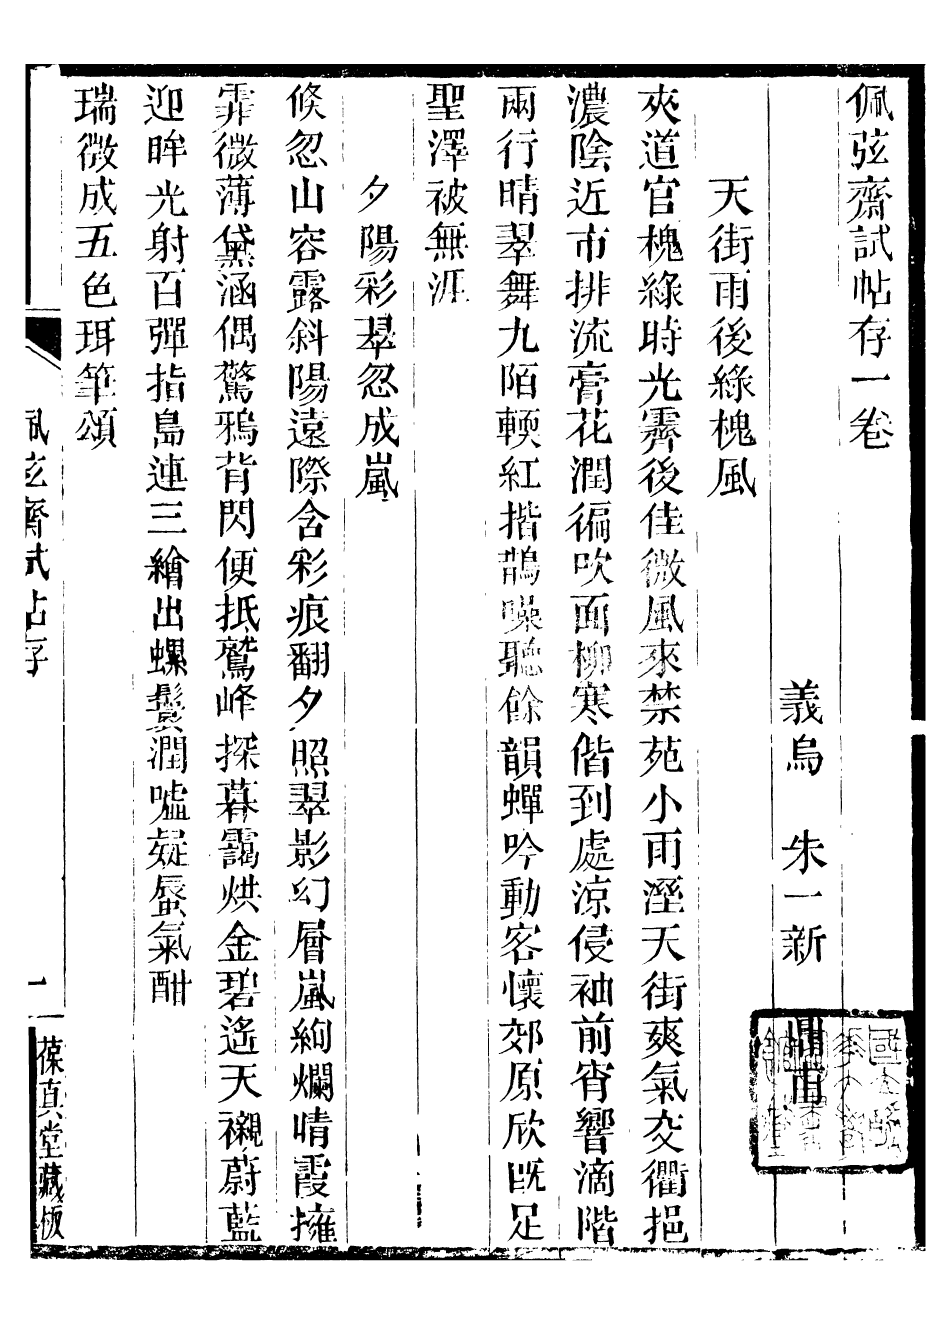 佩弦齋試帖存一卷
義烏 朱一新 鼎甫
天街雨後綠槐風
夾道官槐綠時光霽後佳微風來禁苑小雨溼天街爽氣交衢挹
濃陰近市排流膏花潤徧吹面柳寒偕到處涼侵袖前宵響滴階
兩行晴翠舞九陌輭紅揩鵲噪聽餘韻蟬吟動客懷郊原欣旣足
聖澤被無涯
夕陽彩翠忽成嵐
倏忽山容露斜陽遠際含彩痕翻夕照翠影幻層嵐絢爛晴霞擁
霏微薄黛涵偶驚鴉背閃便抵鷲峰探暮靄烘金碧遙天襯蔚藍
迎眸光射百彈指島連三繪出螺鬟潤噓疑蜃氣酣
瑞徵成五色珥筆頌
佩弦齋試帖存
一
葆眞堂藏板